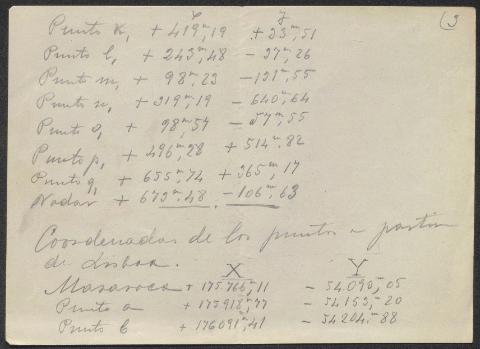 (3
x y
Punto k, + 419ᵐ,19 + 23ᵐ,51
Punto l, + 243ᵐ,48 - 27ᵐ,26
Punto m, + 98ᵐ,23 - 121ᵐ,55
Punto n, + 219ᵐ,19 - 640ᵐ,64
Punto o, + 98ᵐ,54 - 57ᵐ,55
Punto p, + 496ᵐ,28 + 514ᵐ,82
Punto q, + 655ᵐ,74 + 365ᵐ,17
+ 673ᵐ,48 - 106ᵐ,63
Coordenadas de los puntos a partir
de Lisboa.
X Y
+ 175.766,11 - 54.090,05
Punto a + 175918,77 - 54153,20
Punto b + 176091,41 - 54204,88